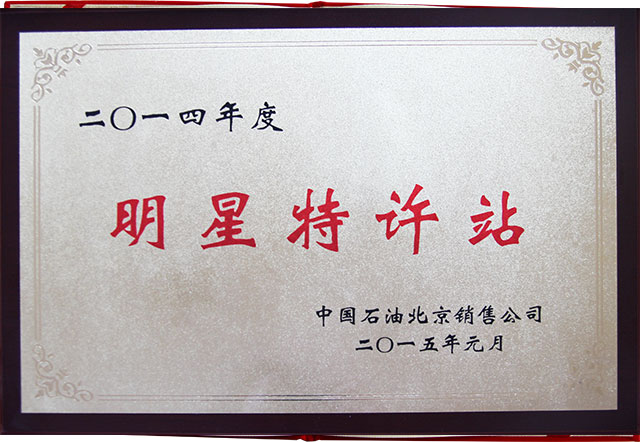 二〇一四年度
明星特许站
中国石油北京销售公司
二〇一五年元月